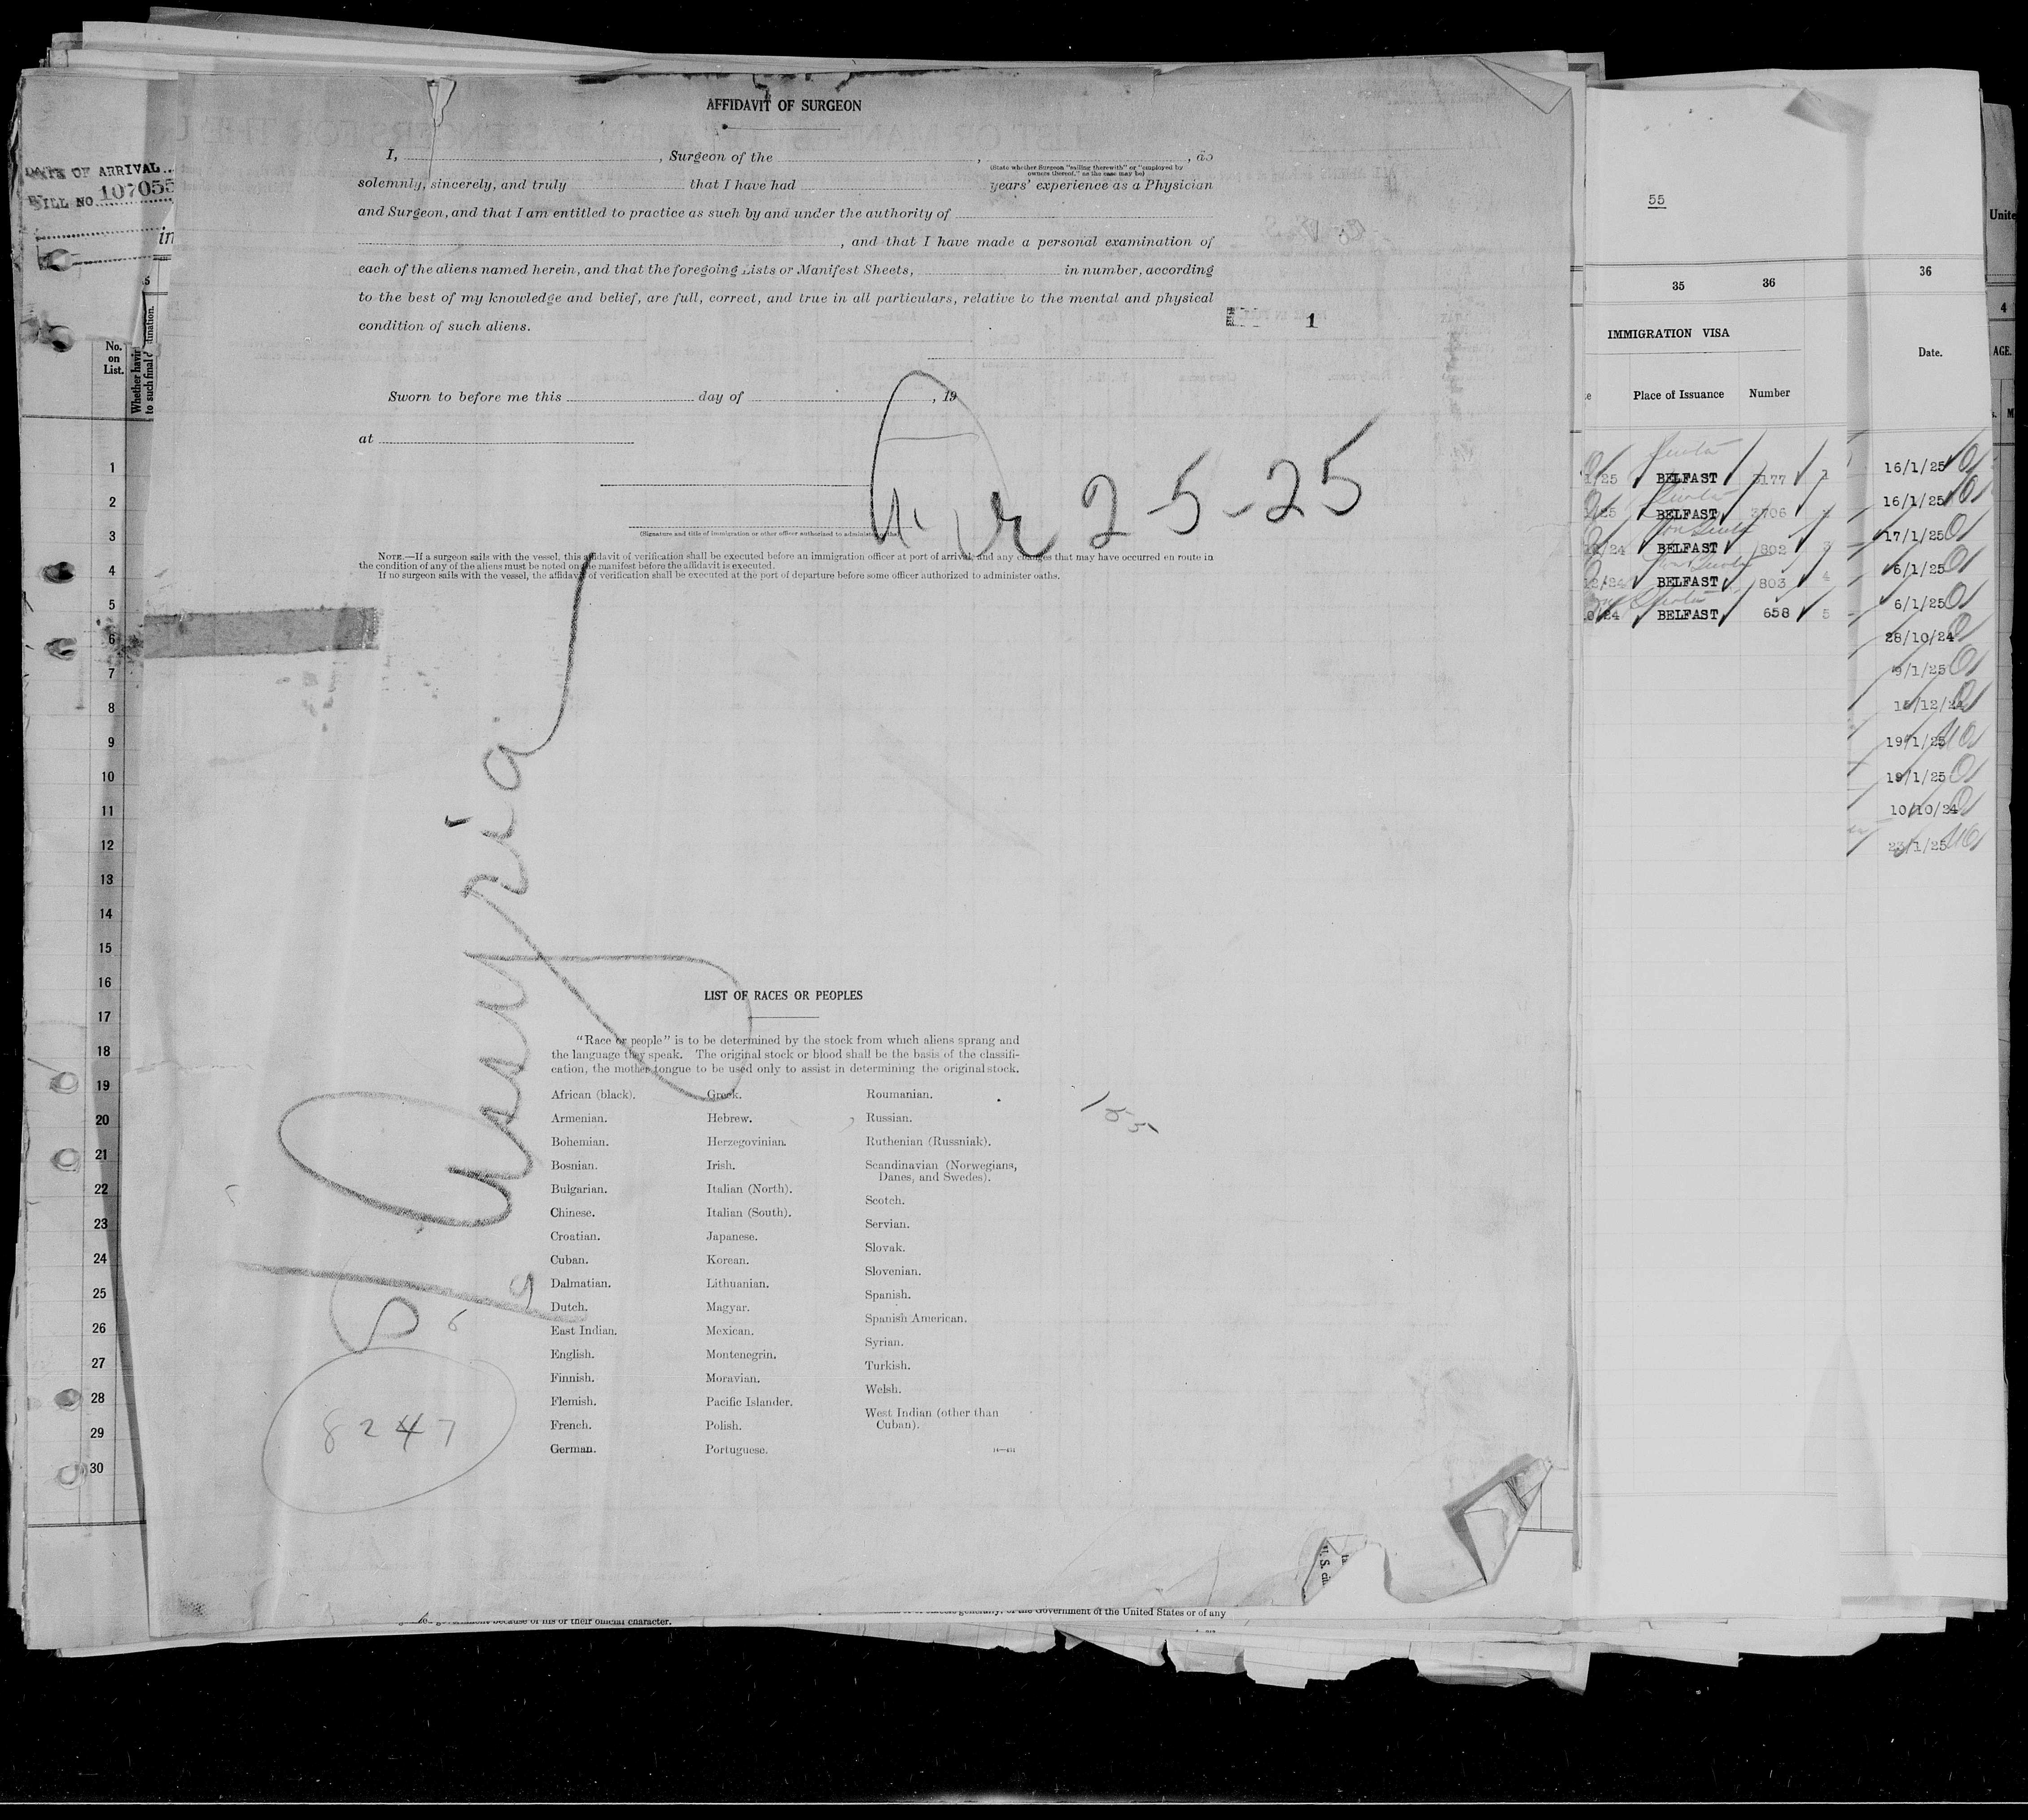 DATE OF ARRIVAL
BILL NO. 107055
AFFIDAVIT OF SURGEON
I, , Surgeon of the , , do
(State whether Surgeon "sailing therewith" or "employed by
owners thereof," as the case may be)
solemnly, sincerely, and truly that I have had years' experience as a Physician
and Surgeon, and that I am entitled to practice as such by and under the authority of
, and that I have made a personal examination of
each of the aliens named herein, and that the foregoing Lists or Manifest Sheets, in number, according
to the best of my knowledge and belief, are full, correct, and true in all particulars, relative to the mental and physical
condition of such aliens.
1
Sworn to before me this day of , 19
at
2-5-25
(Signature and title of immigration or other officer authorized to administer oaths)
NOTE.—If a surgeon sails with the vessel, this affidavit of verification shall be executed before an immigration officer at port of arrival, and any changes that may have occurred en route in
the condition of any of the aliens must be noted on the manifest before the affidavit is executed.
If no surgeon sails with the vessel, the affidavit of verification shall be executed at the port of departure before some officer authorized to administer oaths.
LIST OF RACES OR PEOPLES
"Race or people" is to be determined by the stock from which aliens sprang and
the language they speak. The original stock or blood shall be the basis of the classifi-
cation, the mother tongue to be used only to assist in determining the original stock.
African (black).
Armenian.
Bohemian.
Bosnian.
Bulgarian.
Chinese.
Croatian.
Cuban.
Dalmatian.
Dutch.
East Indian.
English.
Finnish.
Flemish.
French.
German.
Greek.
Hebrew.
Herzegovinian.
Irish.
Italian (North).
Italian (South).
Japanese.
Korean.
Lithuanian.
Magyar.
Mexican.
Montenegrin.
Moravian.
Pacific Islander.
Polish.
Portuguese.
Roumanian.
Russian.
Ruthenian (Russniak).
Scandinavian (Norwegians,
Danes, and Swedes).
Scotch.
Servian.
Slovak.
Slovenian.
Spanish.
Spanish American.
Syrian.
Turkish.
Welsh.
West Indian (other than
Cuban).
155
8247
because of his or their official character.
generally, of the Government of the United States or of any
No.
on
List.
Whether having
to such final destination.
1
2
3
4
5
6
7
8
9
10
11
12
13
14
15
16
17
18
19
20
21
22
23
24
25
26
27
28
29
30
U. S. cit
55
35 36
IMMIGRATION VISA
Place of Issuance Number
1/25 BELFAST 3177 1
1/25 BELFAST 3706
12/24 BELFAST 802 3
12/24 BELFAST 803 4
0/24 BELFAST 658 5
36
Date.
16/1/25
16/1/25
17/1/25
6/1/25
6/1/25
28/10/24
9/1/25
15/12/24
19/1/25
19/1/25
10/10/24
23/1/25
Unite
4
AGE.
M